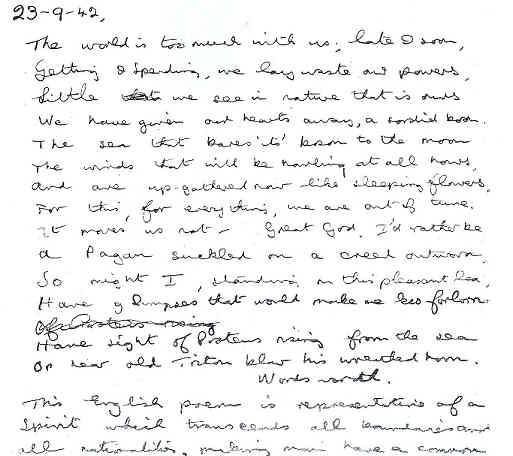 23-9-42,
The world is too much with us; late & soon,
Getting & Spending, we lay waste our powers,
Little we see in nature that is ours
We have given our hearts away, a sordid boon.
The sea that bares 'its' bosom to the moon
The winds that will be howling at all hours,
And are up-gathered now like sleeping flowers.
For this, for everything, we are out of tune.
It moves us not - Great God, I'd rather be
a Pagan suckled on a creed outworn,
So might I, standing on this pleasant lea,
Have glimpses that would make me less forlorn
Have sight of Proteus rising from the sea
Or hear old Triton blow his wreathed horn.
Wordsworth.
This English poem is representative of a
Spirit which transcends all boundaries and
all nationalities, making man have a common